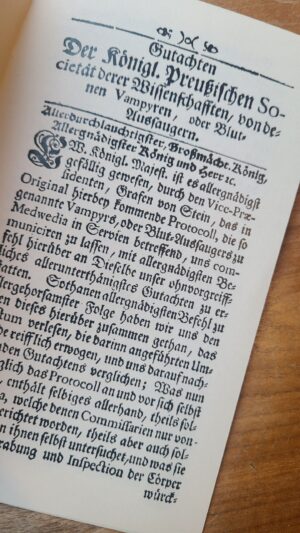 Gutachten
Der Königl. Preußischen So-
cietät derer Wissenschafften, von de-
nen Vampyren, oder Blut-
Aussaugern.
Allerdurchlauchtigster, Großmächt. König,
Allergnädigster König und Herr ꝛc.
EW. Königl. Majest. ist es allergnädigst
gefällig gewesen, durch den Vice-Præ-
sidenten, Grafen von Stein, das in
Original hierbey kommende Protocoll, die so
genannte Vampyrs, oder Blut-Aussaugers zu
Medwedia in Servien betreffend, uns com-
municiren zu lassen, mit allergnädigsten Be-
fehl hierüber an Dieselbe unser ohnvorgreiff-
liches allerunterthänigstes Gutachten zu er-
statten. Sothanen allergnädigsten Befehl zu
allergehorsamster Folge haben wir uns den
dieses hierüber zusammen gethan, das
verlesen, die darinn angeführten Um-
reifflich erwogen, und uns darauf nach-
den Gutachtens verglichen; Was nun
das Protocoll an und vor sich selbst
enthält selbiges allerhand, theils sol-
welche denen Commissarien nur von-
berichtet worden, theils aber auch sol-
ihnen selbst untersuchet, und was sie
und Inspection der Cörper
würck-